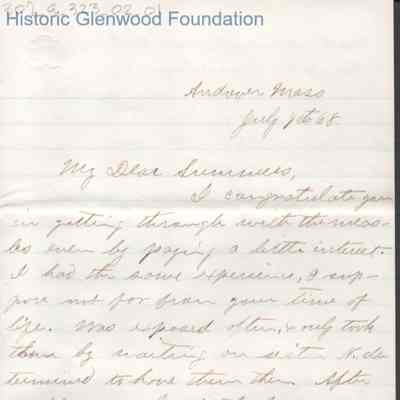 307.9.323.02.01
Historic Glenwood Foundation
Andover Mass
July 1st 68.
My Dear Summers,
I congratulate you
in getting through with the meas-
les even by paying a little interest.
I had the same experience, I sup-
pose not far from your time of
life. Was exposed often, & only took
them by waiting on sister N. de
termined to have them then. After